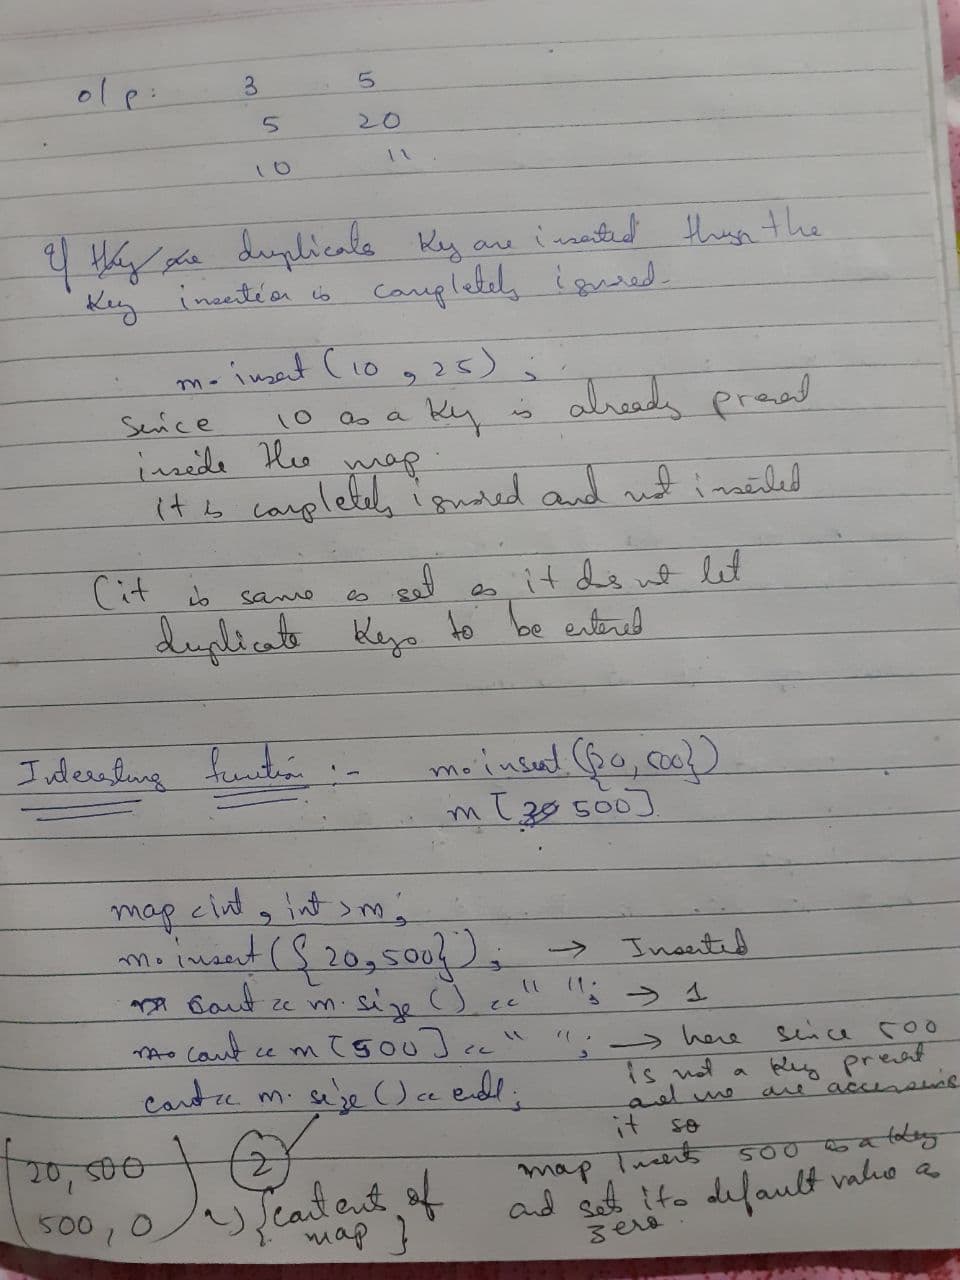 o/p: 3 5
5 20
10 11
If they are duplicate key are inserted then the
key insertion is completely ignored.
m.insert(10, 25);
Since 10 as a key is already present
inside the map.
it is completely ignored and not inserted
(it is same as set as it does not let
duplicate keys to be entered
Interesting function :- m.insert({20,500})
m[500]
map<int, int>m;
m.insert({20,500}); → Inserted
cout << m.size() <<" "; → 1
cout << m[500] << " "; → here since 500
is not a key present
cout << m.size() << endl; and we are accessing
it so
2 map inserts 500 as a key
20, 500 and set its default value as
500, 0 → {content of zero.
map }